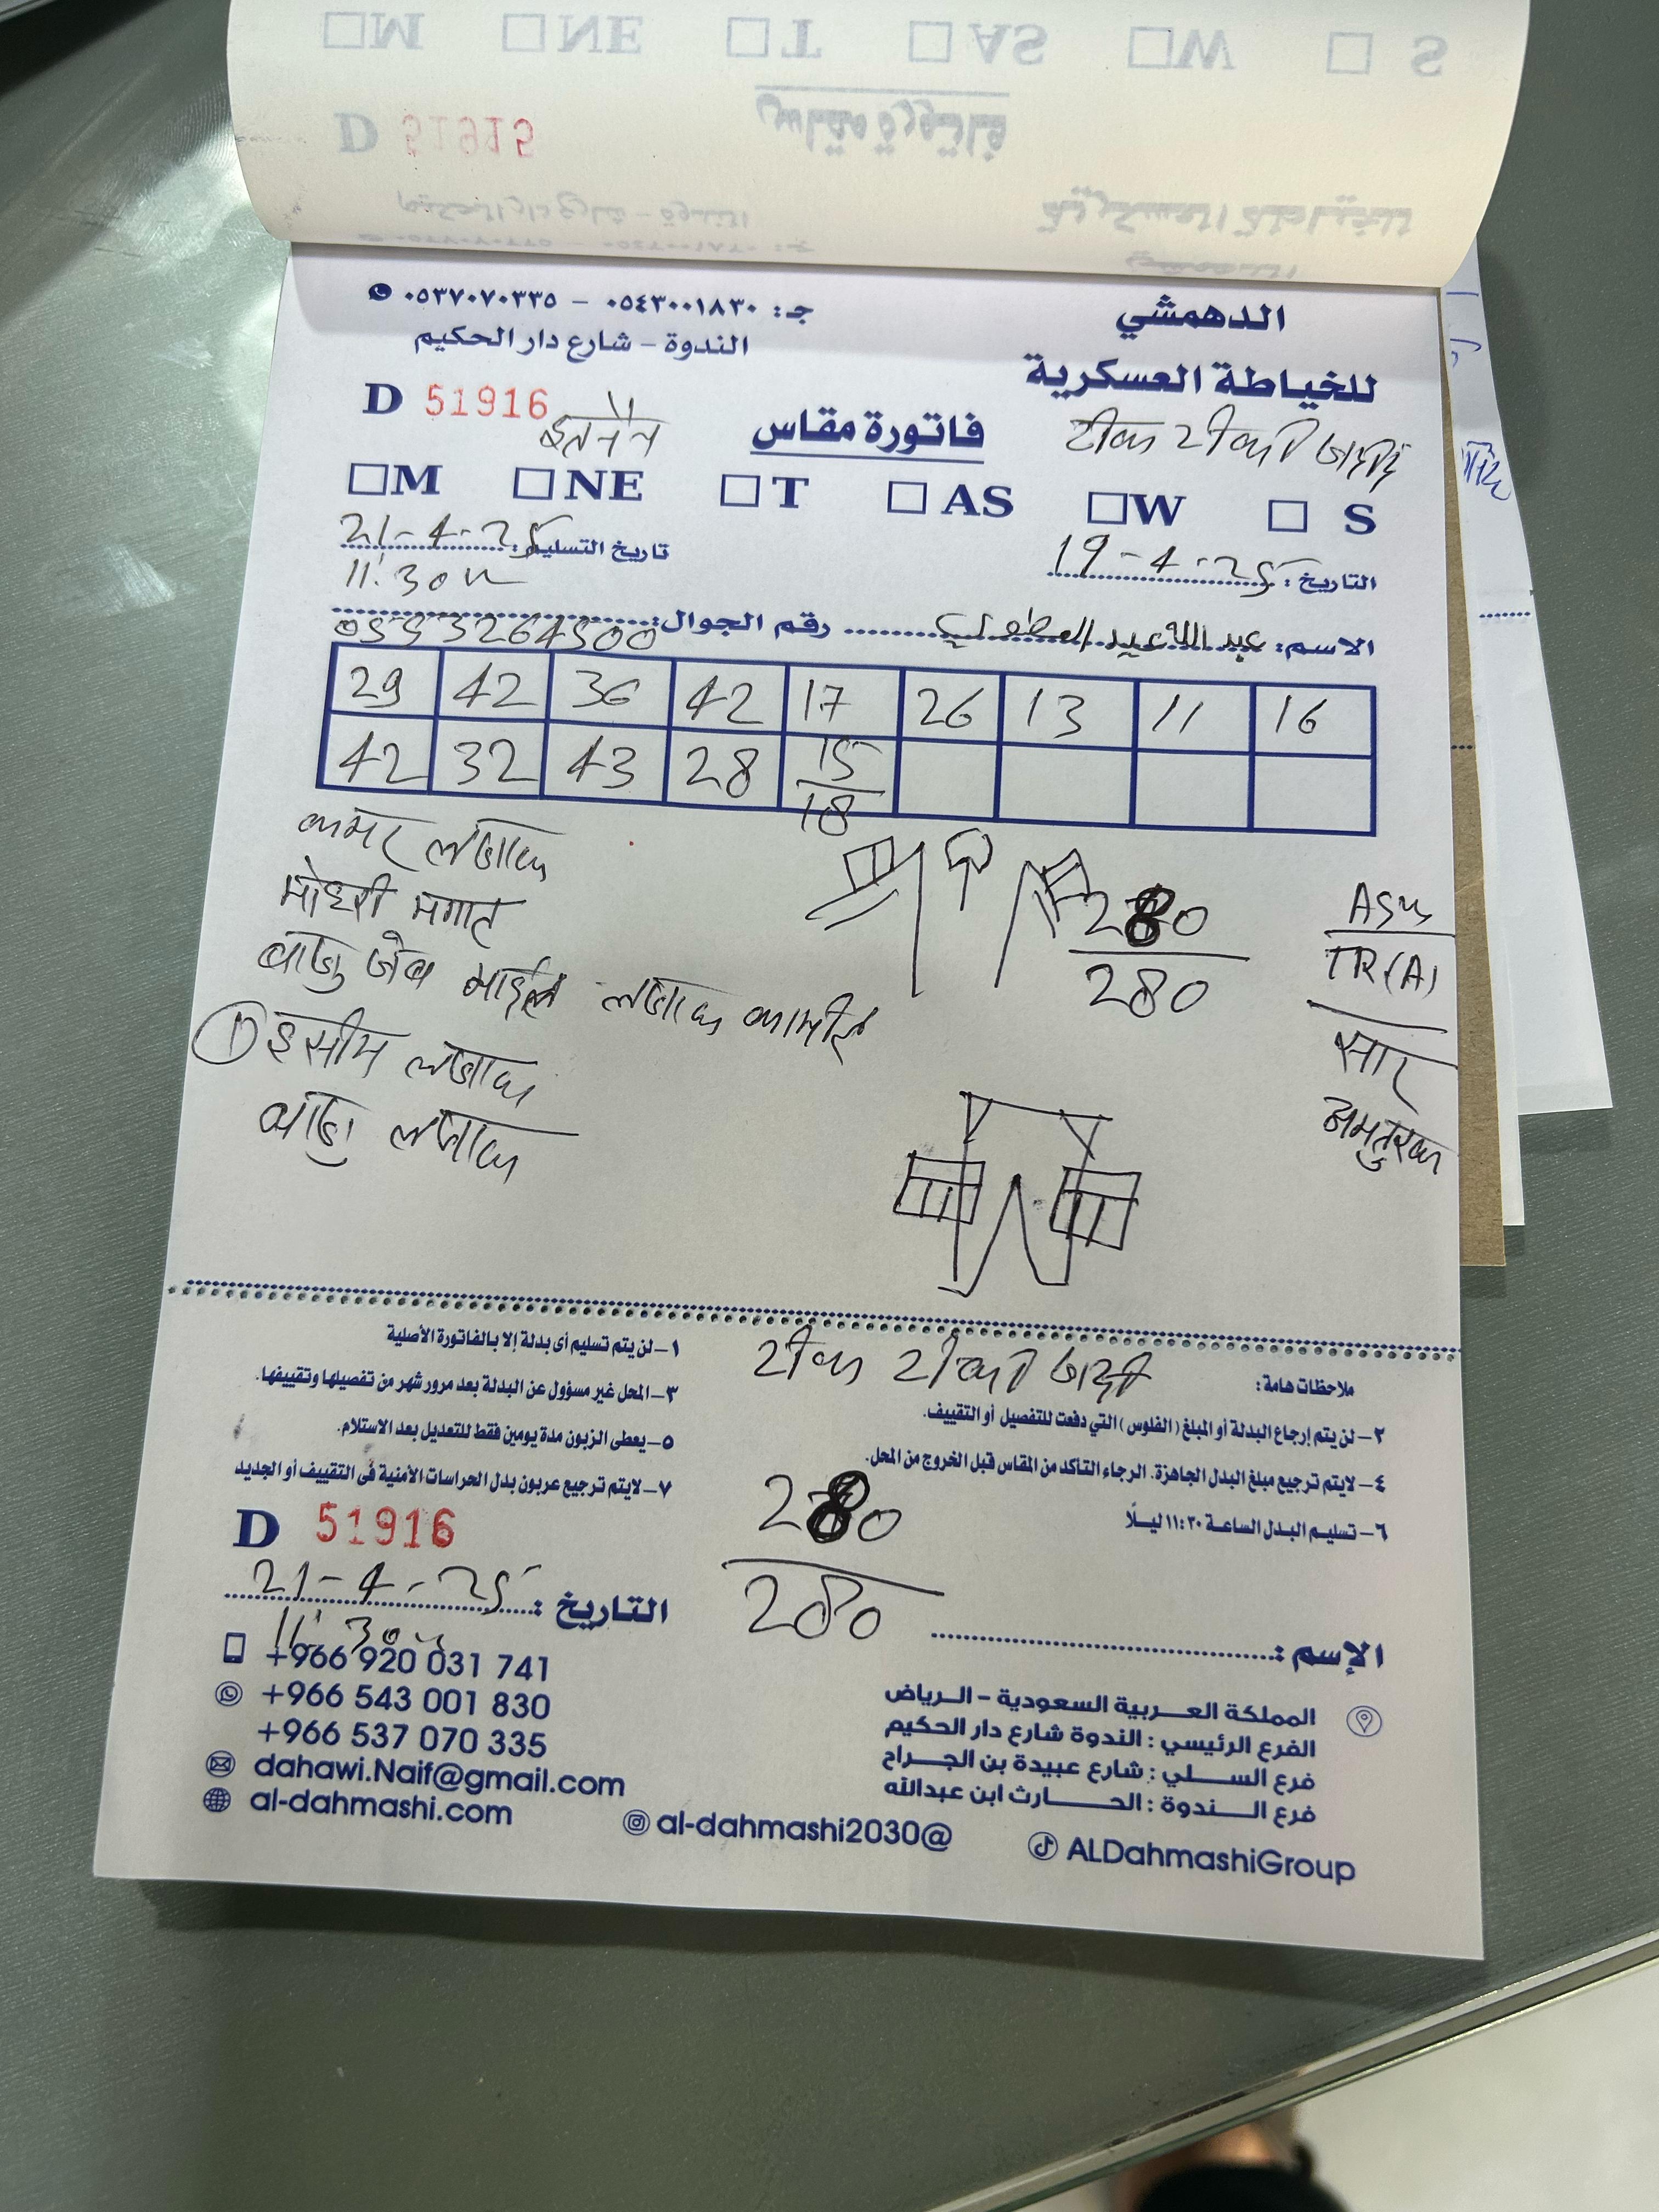 الدهمشي
للخياطة العسكرية
جـ: ٠٥٤٣٠٠١٨٣٠ - ٠٥٣٧٠٧٠٣٣٥
الندوة - شارع دار الحكيم
D 51916
فاتورة مقاس
M NE T AS W S
التاريخ: 19-4-25
تاريخ التسليم: 21-4-25
11:30
الاسم: عبدالله عيد
رقم الجوال: 0553264500
29 42 36 42 17 26 13 11 16
42 32 43 28 15/18
कमर लज्जाक
मोहरी मगाट
बाजु जेब माईल लज्जाक
1 इसीम लज्जाक
बाजु लज्जाक
280
280
TR(A)
सार
ملاحظات هامة:
١- لن يتم تسليم أى بدلة إلا بالفاتورة الأصلية
٢- لن يتم إرجاع البدلة أو المبلغ (الفلوس) التي دفعت للتفصيل أو التقييف.
٣- المحل غير مسؤول عن البدلة بعد مرور شهر من تفصيلها وتقييفها.
٤- لايتم ترجيع مبلغ البدل الجاهزة. الرجاء التأكد من المقاس قبل الخروج من المحل.
٥- يعطى الزبون مدة يومين فقط للتعديل بعد الاستلام.
٦- تسليم البدل الساعة ١١:٣٠ ليلاً
٧- لايتم ترجيع عربون بدل الحراسات الأمنية فى التقييف أو الجديد
280
280
D 51916
التاريخ: 21-4-25
11:30
الإسم:
+966 920 031 741
+966 543 001 830
+966 537 070 335
dahawi.Naif@gmail.com
al-dahmashi.com
المملكة العربية السعودية - الرياض
الفرع الرئيسي: الندوة شارع دار الحكيم
فرع السلي: شارع عبيدة بن الجراح
فرع الندوة: الحارث ابن عبدالله
al-dahmashi2030@
ALDahmashiGroup